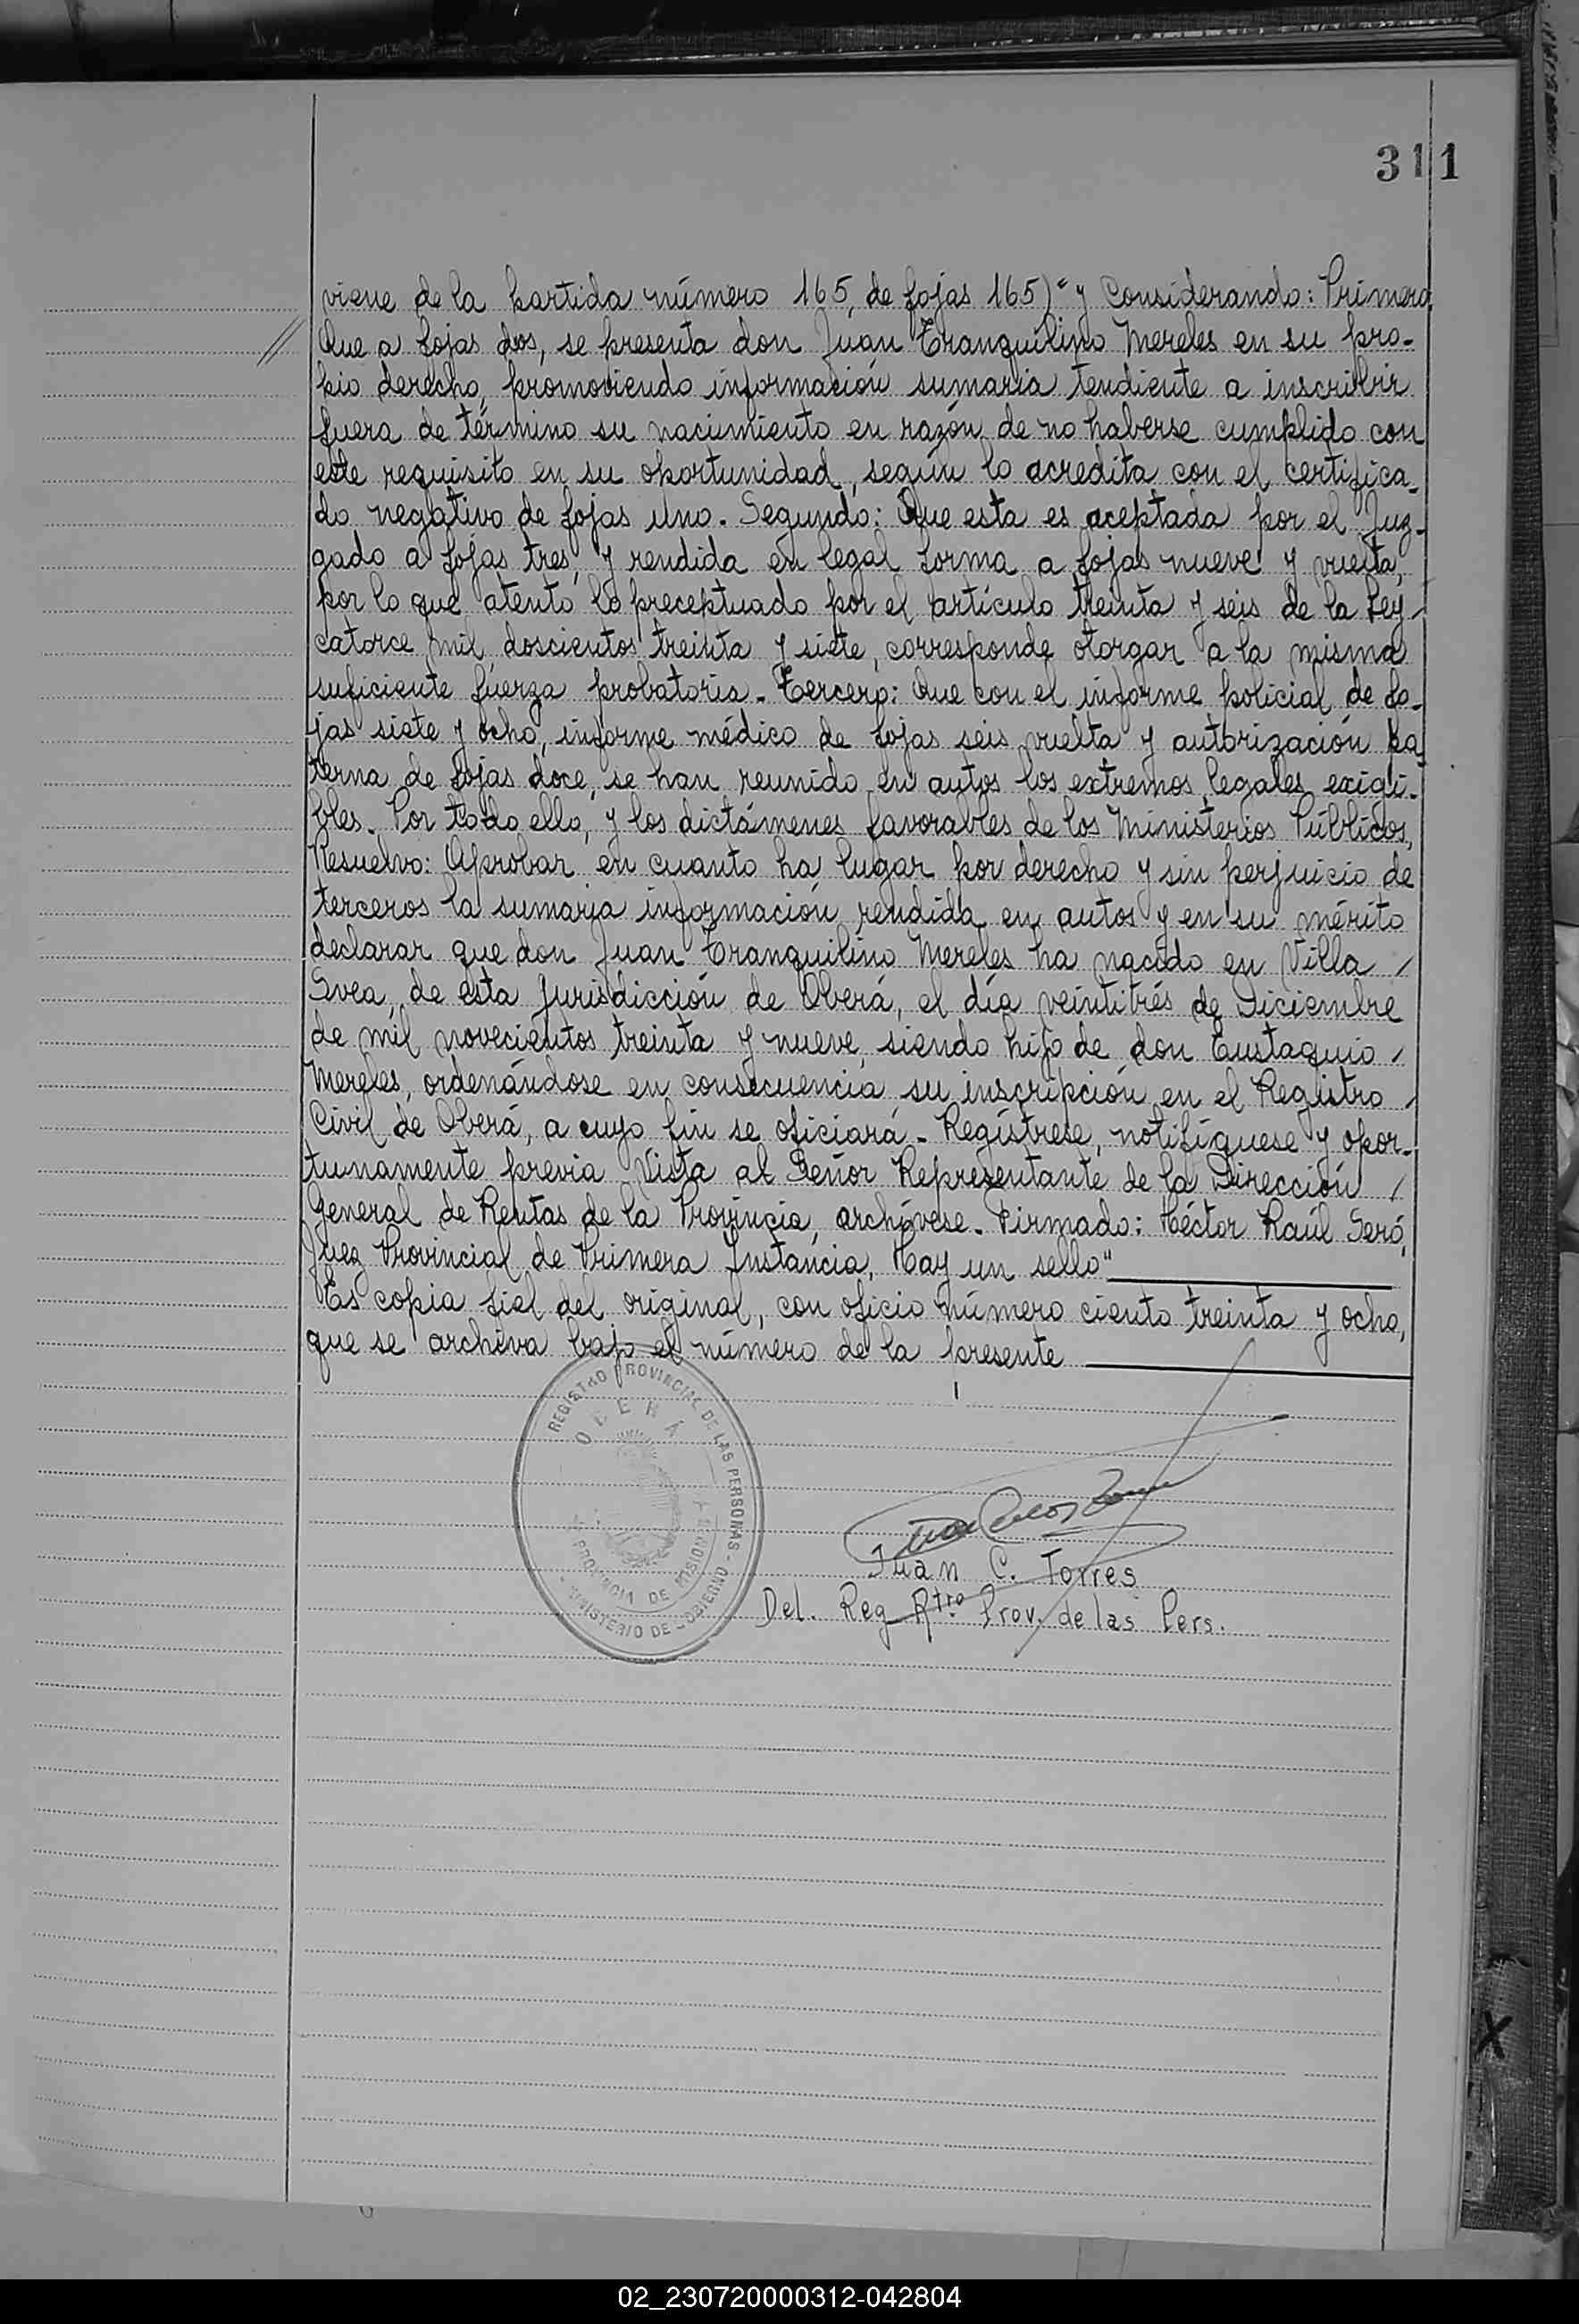 311
viene de la partida número 165, de fojas 165) "y Considerando: Primero
// Que a fojas dos, se presenta don Juan Tranquilino Mereles en su pro-
pio derecho, promoviendo información sumaria tendiente a inscribir
fuera de término su nacimiento en razón de no haberse cumplido con
este requisito en su oportunidad, según lo acredita con el certifica-
do negativo de fojas uno. Segundo: Que esta es aceptada por el Juz-
gado a fojas tres, y rendida en legal forma a fojas nueve y vuelta,
por lo que atento lo preceptuado por el artículo treinta y seis de la Ley /
catorce mil doscientos treinta y siete, corresponde otorgar a la misma
suficiente fuerza probatoria. Tercero: Que con el informe policial de fo-
jas siete y ocho, informe médico de fojas seis vuelta y autorización pa-
terna de fojas doce, se han reunido en autos los extremos legales exigi-
bles. Por todo ello, y los dictámenes favorables de los Ministerios Públicos,
Resuelvo: Aprobar en cuanto ha lugar por derecho y sin perjuicio de
terceros la sumaria información rendida en autos y en su mérito
declarar que don Juan Tranquilino Mereles ha nacido en Villa /
Svea, de esta Jurisdicción de Oberá, el día veintitrés de Diciembre
de mil novecientos treinta y nueve, siendo hijo de don Eustaquio /
Mereles, ordenándose en consecuencia su inscripción en el Registro /
Civil de Oberá, a cuyo fin se oficiará. Regístrese, notifíquese y opor-
tunamente previa Vista al Señor Representante de la Dirección /
General de Rentas de la Provincia, archívese. Firmado: Héctor Raúl Seró,
Juez Provincial de Primera Instancia. Hay un sello"
Es copia fiel del original, con oficio número ciento treinta y ocho,
que se archiva bajo el número de la presente
REGISTRO PROVINCIAL DE LAS PERSONAS - MINISTERIO DE GOBIERNO
OBERÁ
PROVINCIA DE MISIONES
Juan C. Torres
Del. Reg Rtro Prov. de las Pers.
X
02_230720000312-042804